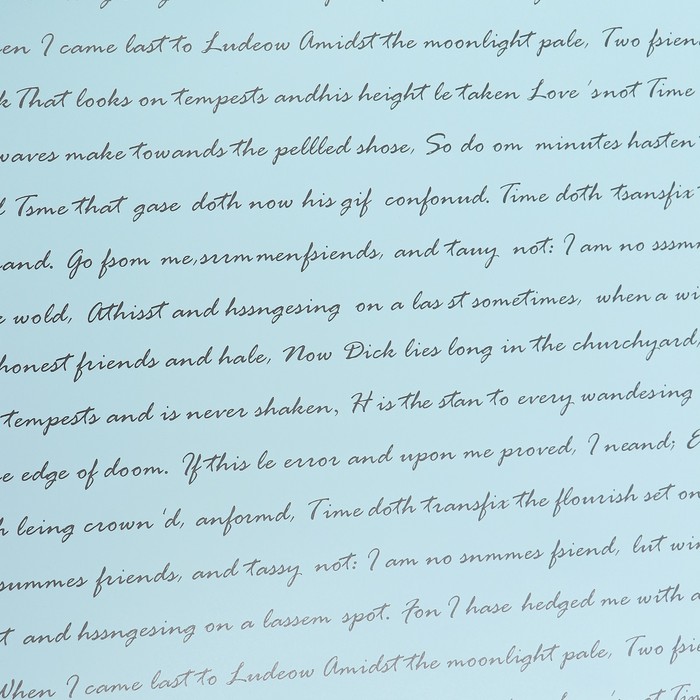 en I came last to Ludeow Amidst the moonlight pale, Two fsien
k That looks on tempests andhis height le taken Love 'snot Time
waves make towands the pellled shose, So do om minutes hasten
l Tsme that gase doth now his gif confonud. Time doth tsansfix
and. Go fsom me, and tauy not: I am no
wold, Athisst and hssngesing on a las st sometimes, when a wi
honest friends and hale, Now Dick lies long in the churchyard,
tempests and is never shaken, H is the stan to every wandesing
e edge of doom. If this le error and upon me proved, I neand; E
h leing crown'd, anformd, Time doth transfix the flourish set on
summes friends, and tassy not: I am no snmmes fsiend, lut win
t and hssngesing on a lassem spot. Fon I hase hedged me with a
When I came last to Ludeow Amidst the moonlight pale, Two fsie